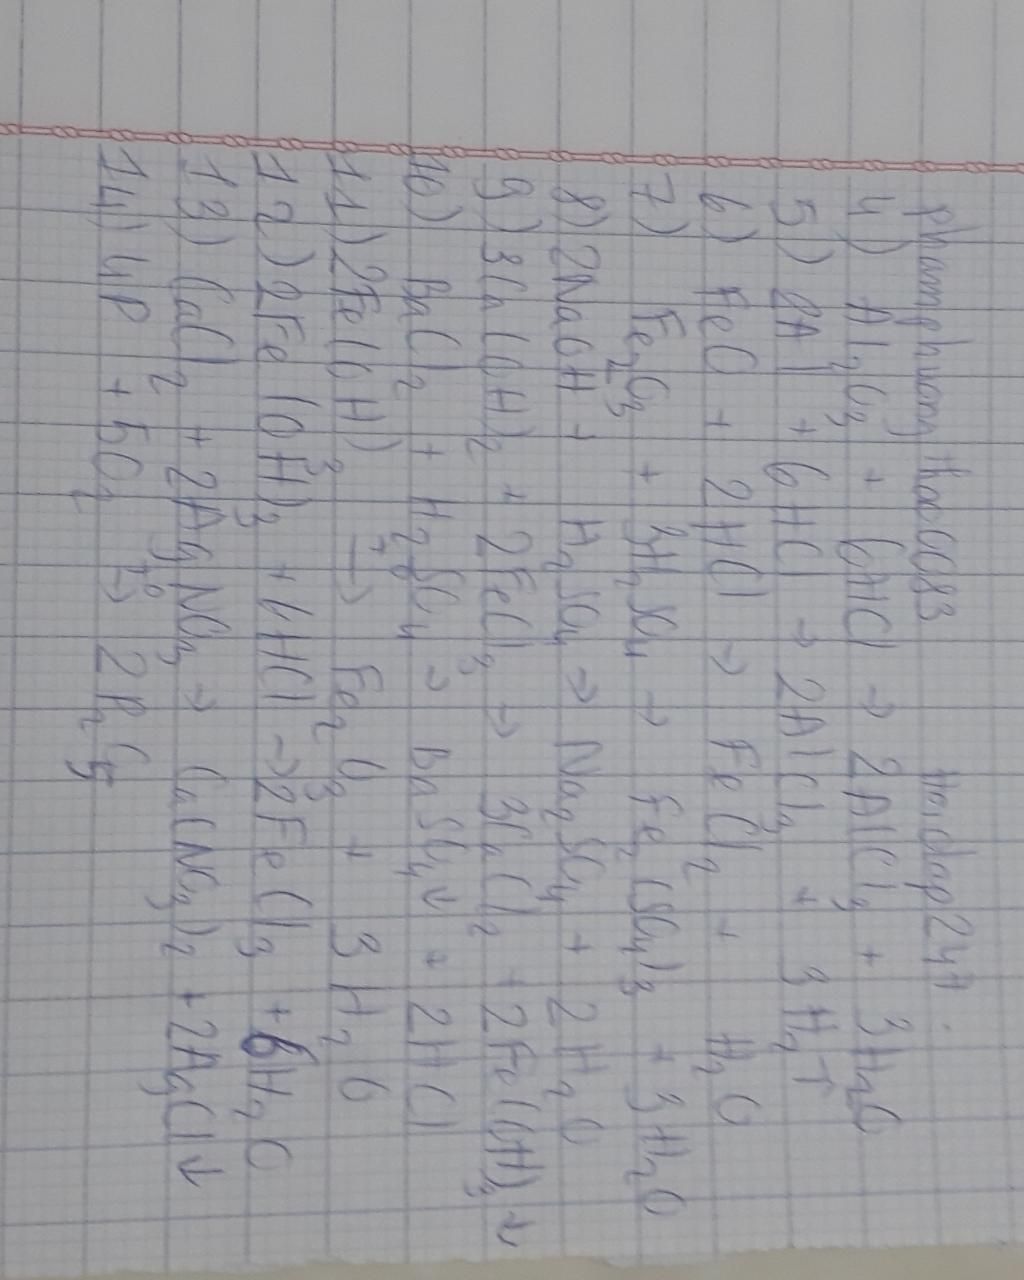 phamphuong thao0983 Hoidap247
4) Al₂O₃ + 6HCl → 2AlCl₃ + 3H₂O
5) 2Al + 6HCl → 2AlCl₃ + 3H₂↑
6) FeO + 2HCl → FeCl₂ + H₂O
7) Fe₂O₃ + 3H₂SO₄ → Fe₂(SO₄)₃ + 3H₂O
8) 2NaOH + H₂SO₄ → Na₂SO₄ + 2H₂O
9) 3Ca(OH)₂ + 2FeCl₃ → 3CaCl₂ + 2Fe(OH)₃↓
10) BaCl₂ + H₂SO₄ → BaSO₄↓ + 2HCl
11) 2Fe(OH)₃ t°→ Fe₂O₃ + 3H₂O
12) 2Fe(OH)₃ + 6HCl → 2FeCl₃ + 6H₂O
13) CaCl₂ + 2AgNO₃ → Ca(NO₃)₂ + 2AgCl↓
14) 4P + 5O₂ t°→ 2P₂O₅